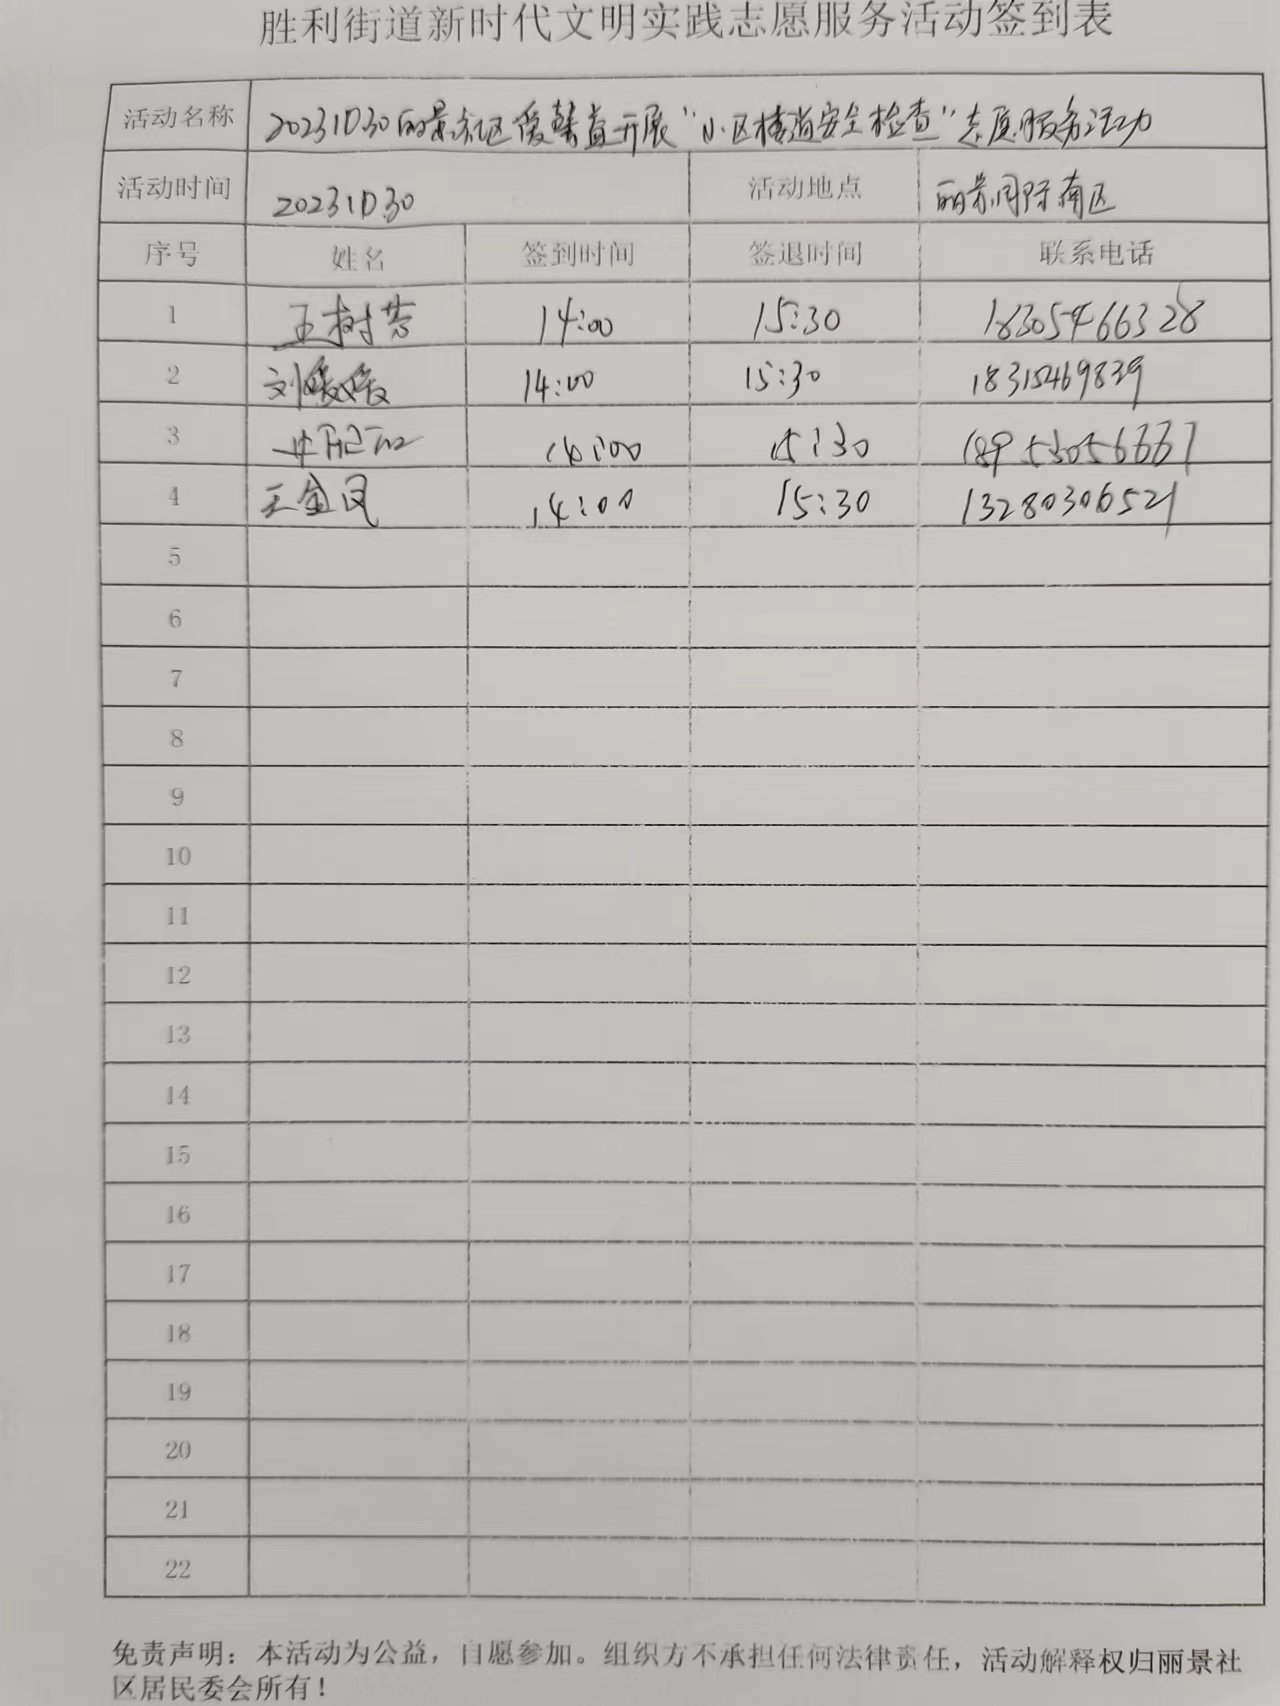 胜利街道新时代文明实践志愿服务活动签到表
活动名称 20231030丽景社区爱馨益开展“小区楼道安全检查”志愿服务活动
活动时间 20231030 活动地点 丽景国际南区
序号 姓名 签到时间 签退时间 联系电话
1 王树芳 14:00 15:30 18305466328
2 刘媛媛 14:00 15:30 18315469839
3 14:00 15:30
4 王金凤 14:00 15:30 13280306521
5
6
7
8
9
10
11
12
13
14
15
16
17
18
19
20
21
22
免责声明：本活动为公益，自愿参加。组织方不承担任何法律责任，活动解释权归丽景社
区居民委会所有！